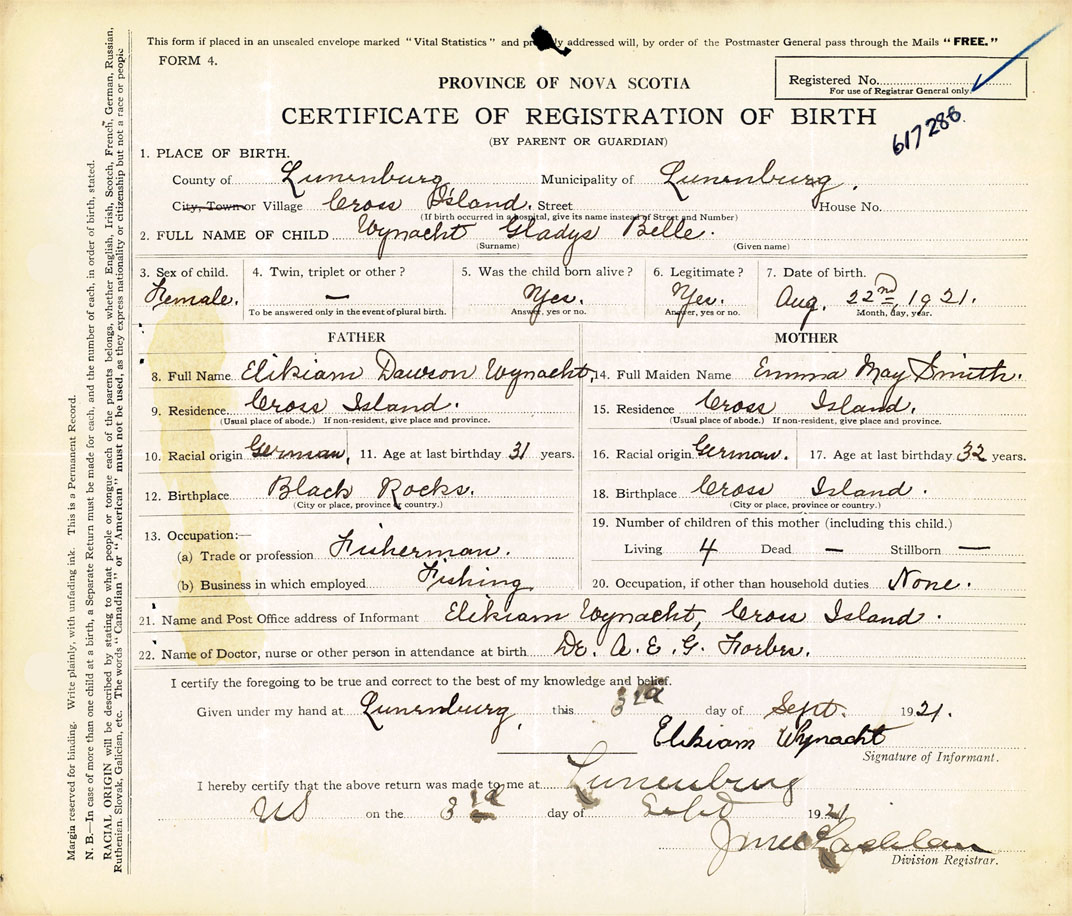 This form if placed in an unsealed envelope marked "Vital Statistics" and properly addressed will, by order of the Postmaster General pass through the Mails "FREE."
FORM 4.
PROVINCE OF NOVA SCOTIA
Registered No.
For use of Registrar General only.
CERTIFICATE OF REGISTRATION OF BIRTH
617286
(BY PARENT OR GUARDIAN)
1. PLACE OF BIRTH.
County of Lunenburg Municipality of Lunenburg.
City, Town or Village Cross Island. Street House No.
(If birth occurred in a hospital, give its name instead of Street and Number)
2. FULL NAME OF CHILD Wynacht Gladys Belle.
(Surname) (Given name)
3. Sex of child. 4. Twin, triplet or other? 5. Was the child born alive? 6. Legitimate? 7. Date of birth.
Female. — Yes. Yes. Aug. 22nd, 1921.
To be answered only in the event of plural birth. Answer, yes or no. Answer, yes or no. Month, day, year.
FATHER MOTHER
8. Full Name Elikiam Dawson Wynacht, 14. Full Maiden Name Emma May Smith.
9. Residence Cross Island. 15. Residence Cross Island.
(Usual place of abode.) If non-resident, give place and province. (Usual place of abode.) If non-resident, give place and province.
10. Racial origin German, 11. Age at last birthday 31 years. 16. Racial origin German. 17. Age at last birthday 32 years.
12. Birthplace Black Rocks. 18. Birthplace Cross Island.
(City or place, province or country.) (City or place, province or country.)
19. Number of children of this mother (including this child.)
13. Occupation:—
(a) Trade or profession Fisherman. Living 4 Dead — Stillborn —
(b) Business in which employed Fishing 20. Occupation, if other than household duties. None.
21. Name and Post Office address of Informant Elikiam Wynacht, Cross Island.
22. Name of Doctor, nurse or other person in attendance at birth. Dr. A. E. G. Forbes.
I certify the foregoing to be true and correct to the best of my knowledge and belief.
Given under my hand at Lunenburg, this 3rd day of Sept. 1921.
Elikiam Wynacht
Signature of Informant.
I hereby certify that the above return was made to me at Lunenburg
NS on the 3rd day of Sept 1921
Division Registrar.
Margin reserved for binding. Write plainly, with unfading ink. This is a Permanent Record.
N. B.—In case of more than one child at a birth, a Separate Return must be made for each, and the number of each, in order of birth, stated.
RACIAL ORIGIN will be described by stating to what people or tongue each of the parents belongs, whether English, Irish, Scotch, French, German, Russian,
Ruthenian, Slovak, Galician, etc. The words "Canadian" or "American" must not be used, as they express nationality or citizenship but not a race or people